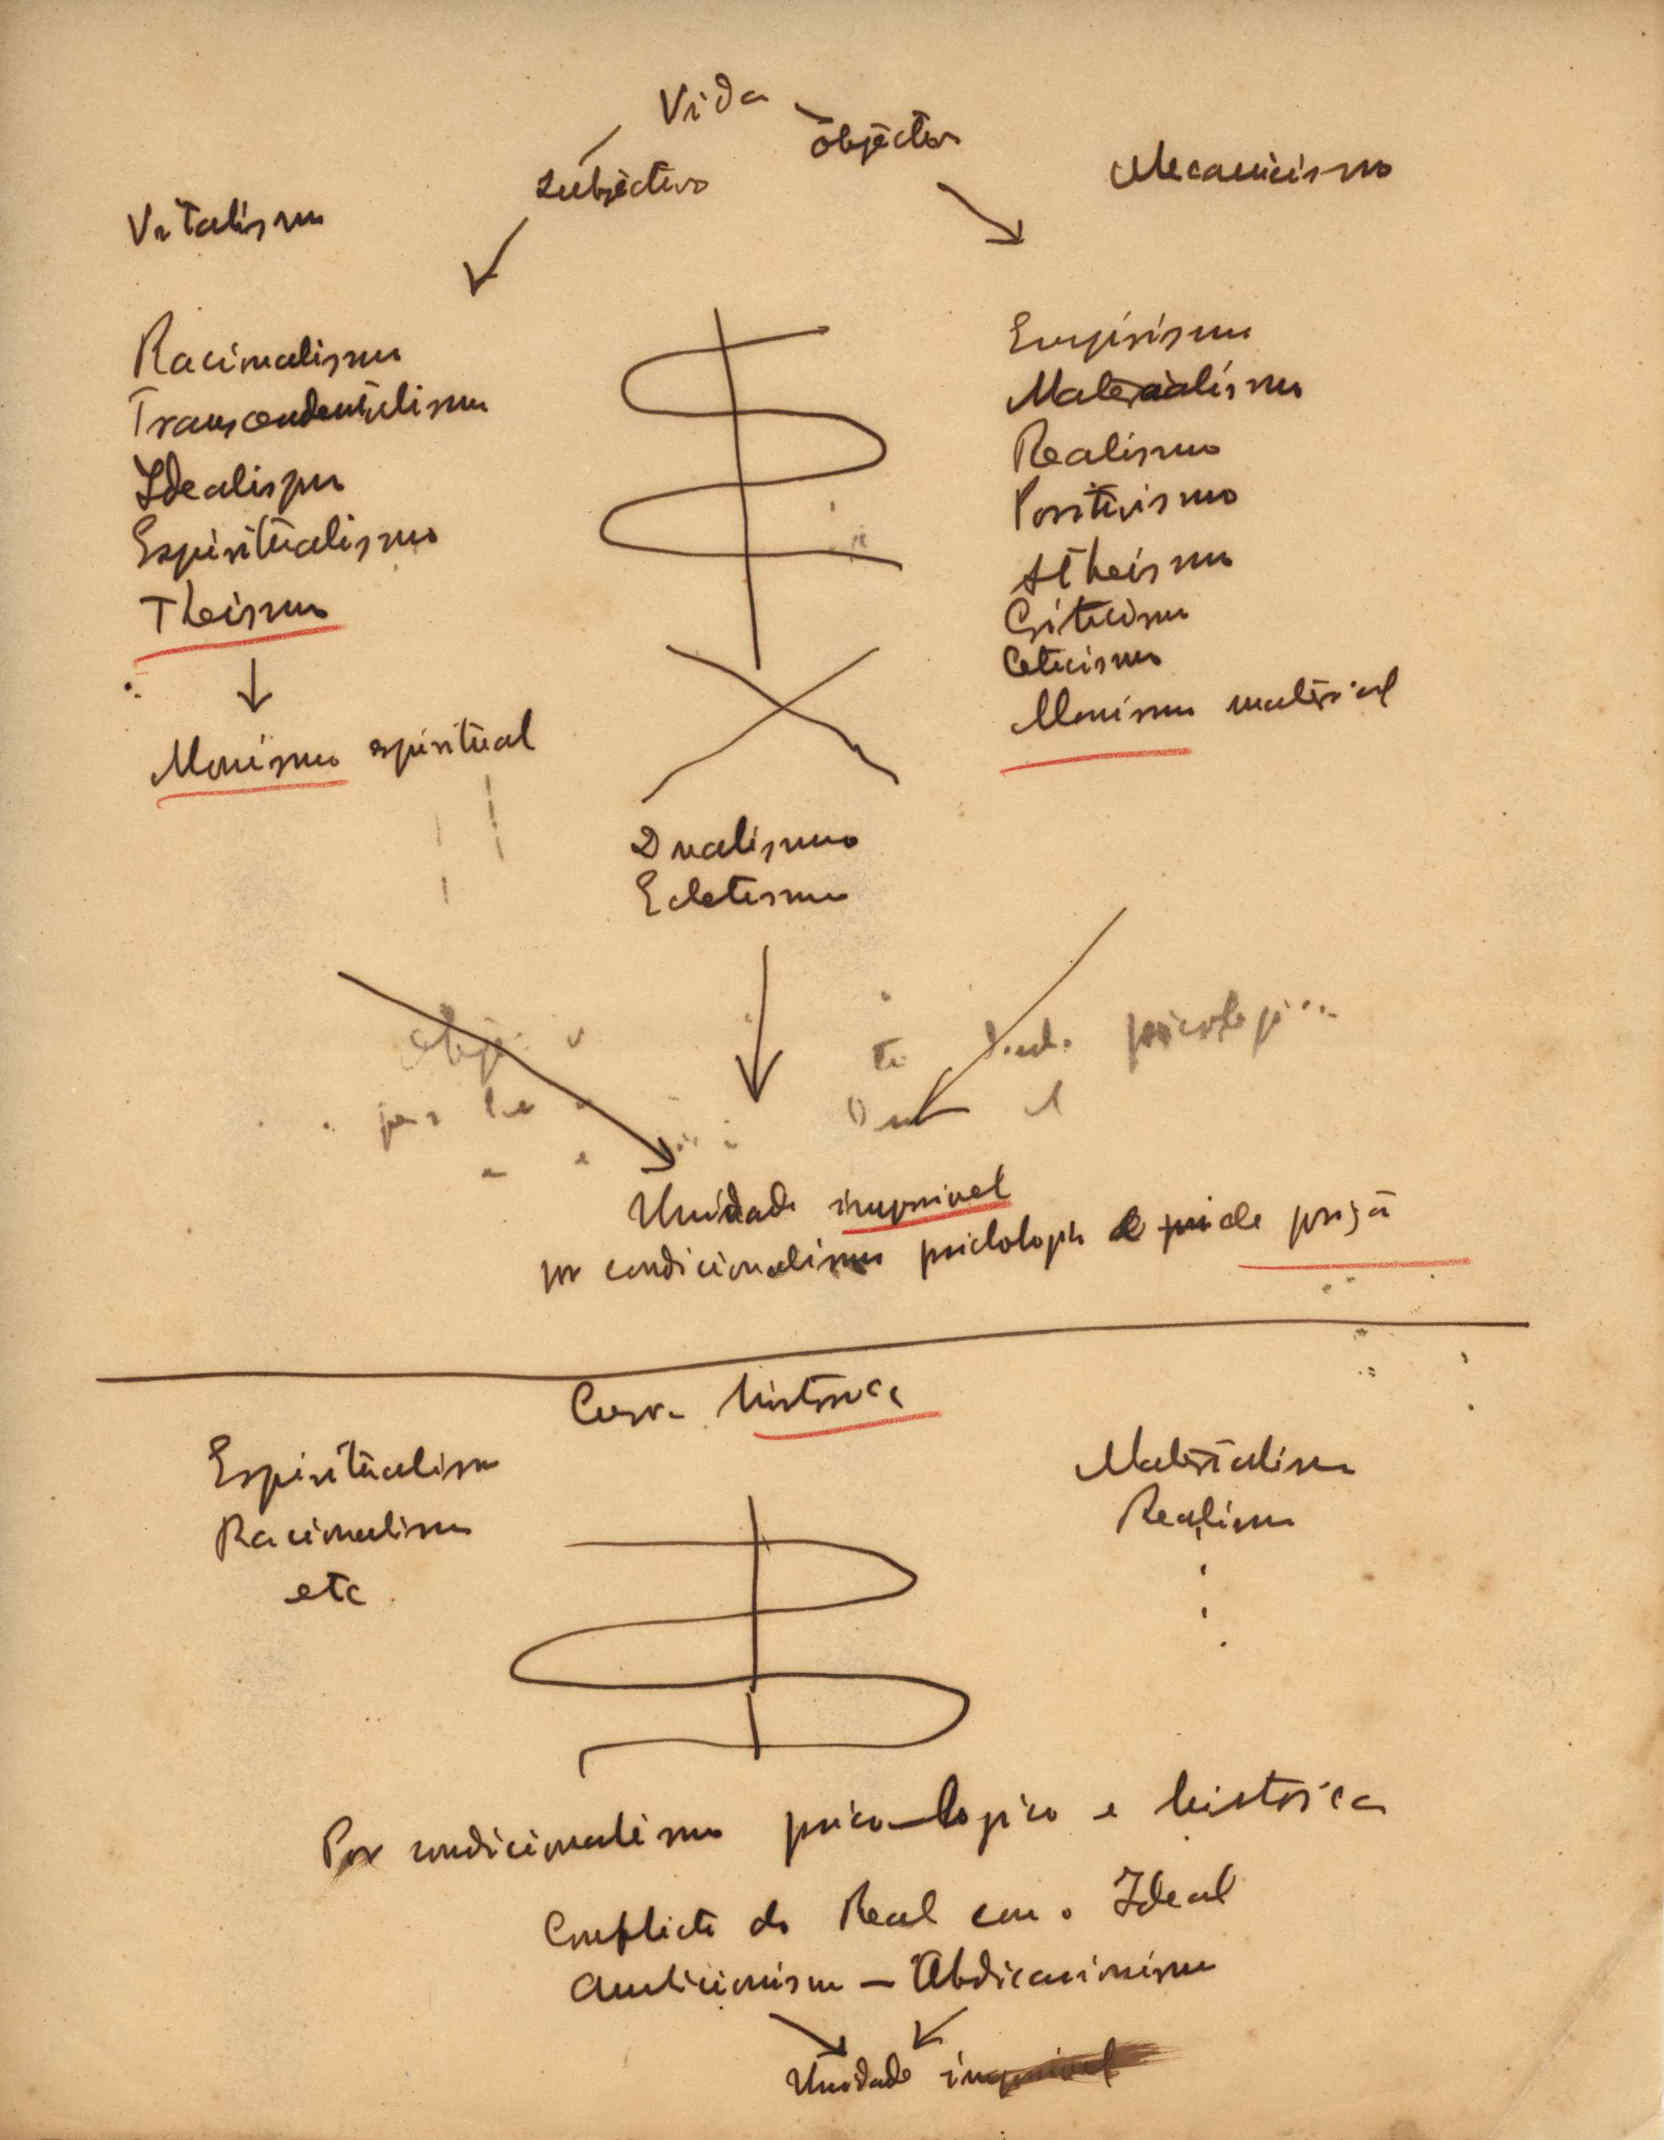 Vida
Subjectivo
Objectivo
Vitalismo
Mecanicismo
Racionalismo
Transcendentalismo
Idealismo
Espiritualismo
Theismo
Monismo espiritual
Empirismo
Materialismo
Realismo
Positivismo
Atheismo
Criticismo
Ceticismo
Monismo material
Dualismo
Ecletismo
Unidade
por condicionalismo
Curva historica
Espiritualismo
Racionalismo
etc
Materialismo
Realismo
Por condicionalismo psico-logico e historico
Conflicto do Real com o Ideal
Ambicionismo — Abdicacionismo
Unidade